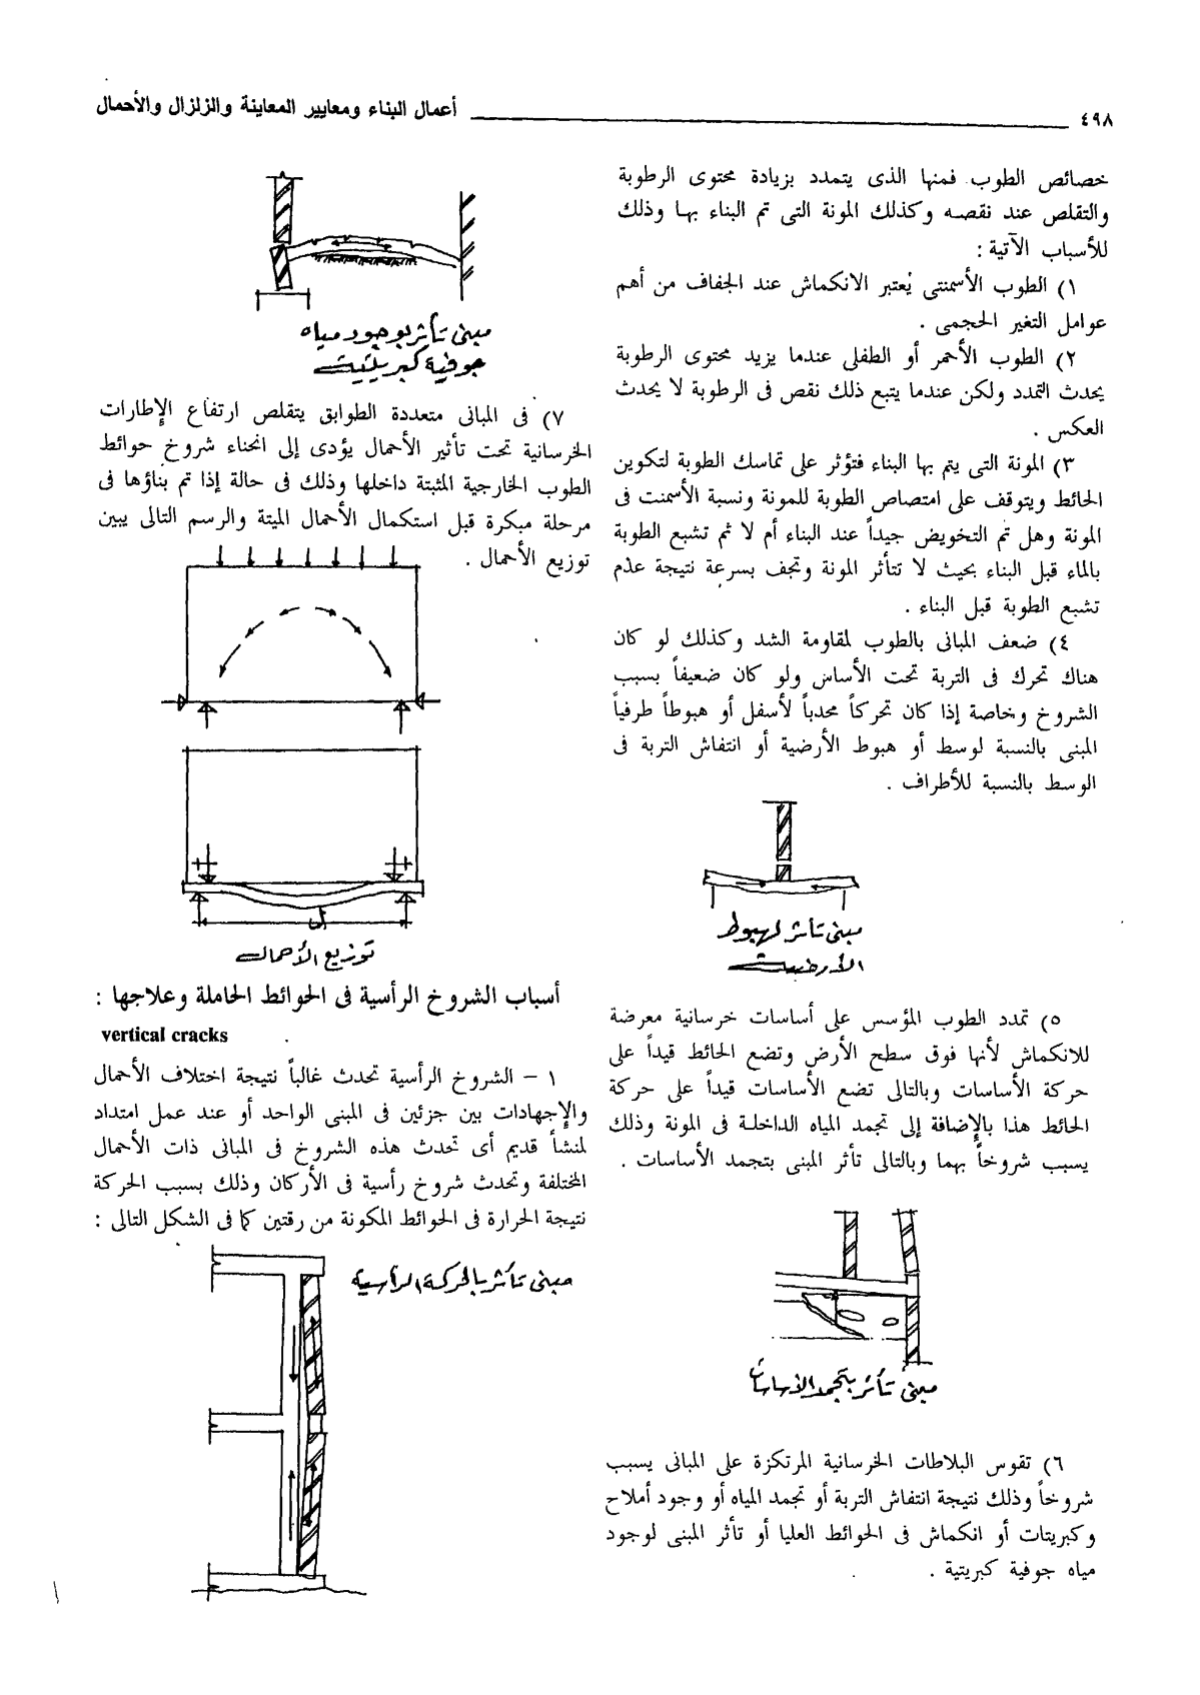 ٤٩٨
أعمال البناء ومعايير المعاينة والزلزال والأحمال
خصائص الطوب فمنها الذى يتمدد بزيادة محتوى الرطوبة
والتقلص عند نقصه وكذلك المونة التى تم البناء بها وذلك
للأسباب الآتية :
١) الطوب الأسمنتى يُعتبر الانكماش عند الجفاف من أهم
عوامل التغير الحجمى .
٢) الطوب الأحمر أو الطفلى عندما يزيد محتوى الرطوبة
يحدث التمدد ولكن عندما يتبع ذلك نقص فى الرطوبة لا يحدث
العكس .
٣) المونة التى يتم بها البناء فتؤثر على تماسك الطوبة لتكوين
الحائط ويتوقف على امتصاص الطوبة للمونة ونسبة الأسمنت فى
المونة وهل تم التخويض جيداً عند البناء أم لا ثم تشبع الطوبة
بالماء قبل البناء بحيث لا تتأثر المونة وتجف بسرعة نتيجة عدم
تشبع الطوبة قبل البناء .
٤) ضعف المبانى بالطوب لمقاومة الشد وكذلك لو كان
هناك تحرك فى التربة تحت الأساس ولو كان ضعيفاً بسبب
الشروخ وخاصة إذا كان تحركاً محدباً لأسفل أو هبوطاً طرفياً
المبنى بالنسبة لوسط أو هبوط الأرضية أو انتفاش التربة فى
الوسط بالنسبة للأطراف .
مبنى تأثر لهبوط
الأرضيت
٥) تمدد الطوب المؤسس على أساسات خرسانية معرضة
للانكماش لأنها فوق سطح الأرض وتضع الحائط قيداً على
حركة الأساسات وبالتالى تضع الأساسات قيداً على حركة
الحائط هذا بالإضافة إلى تجمد المياه الداخلة فى المونة وذلك
يسبب شروخاً بهما وبالتالى تأثر المبنى بتجمد الأساسات .
مبنى تأثر بتجمد الأساسات
٦) تقوس البلاطات الخرسانية المرتكزة على المبانى يسبب
شروخاً وذلك نتيجة انتفاش التربة أو تجمد المياه أو وجود أملاح
وكبريتات أو انكماش فى الحوائط العليا أو تأثر المبنى لوجود
مياه جوفية كبريتية .
مبنى تأثر بوجود مياه
جوفية كبريتيت
٧) فى المبانى متعددة الطوابق يتقلص ارتفاع الإطارات
الخرسانية تحت تأثير الأحمال يؤدى إلى انحناء شروخ حوائط
الطوب الخارجية المثبتة داخلها وذلك فى حالة إذا تم بناؤها فى
مرحلة مبكرة قبل استكمال الأحمال الميتة والرسم التالى يبين
توزيع الأحمال .
ل
توزيع الأحمال
أسباب الشروخ الرأسية فى الحوائط الحاملة وعلاجها :
vertical cracks
١ – الشروخ الرأسية تحدث غالباً نتيجة اختلاف الأحمال
والإجهادات بين جزئين فى المبنى الواحد أو عند عمل امتداد
لمنشأ قديم أى تحدث هذه الشروخ فى المبانى ذات الأحمال
المختلفة وتحدث شروخ رأسية فى الأركان وذلك بسبب الحركة
نتيجة الحرارة فى الحوائط المكونة من رقتين كما فى الشكل التالى :
مبنى تأثر بالحركة الرأسية